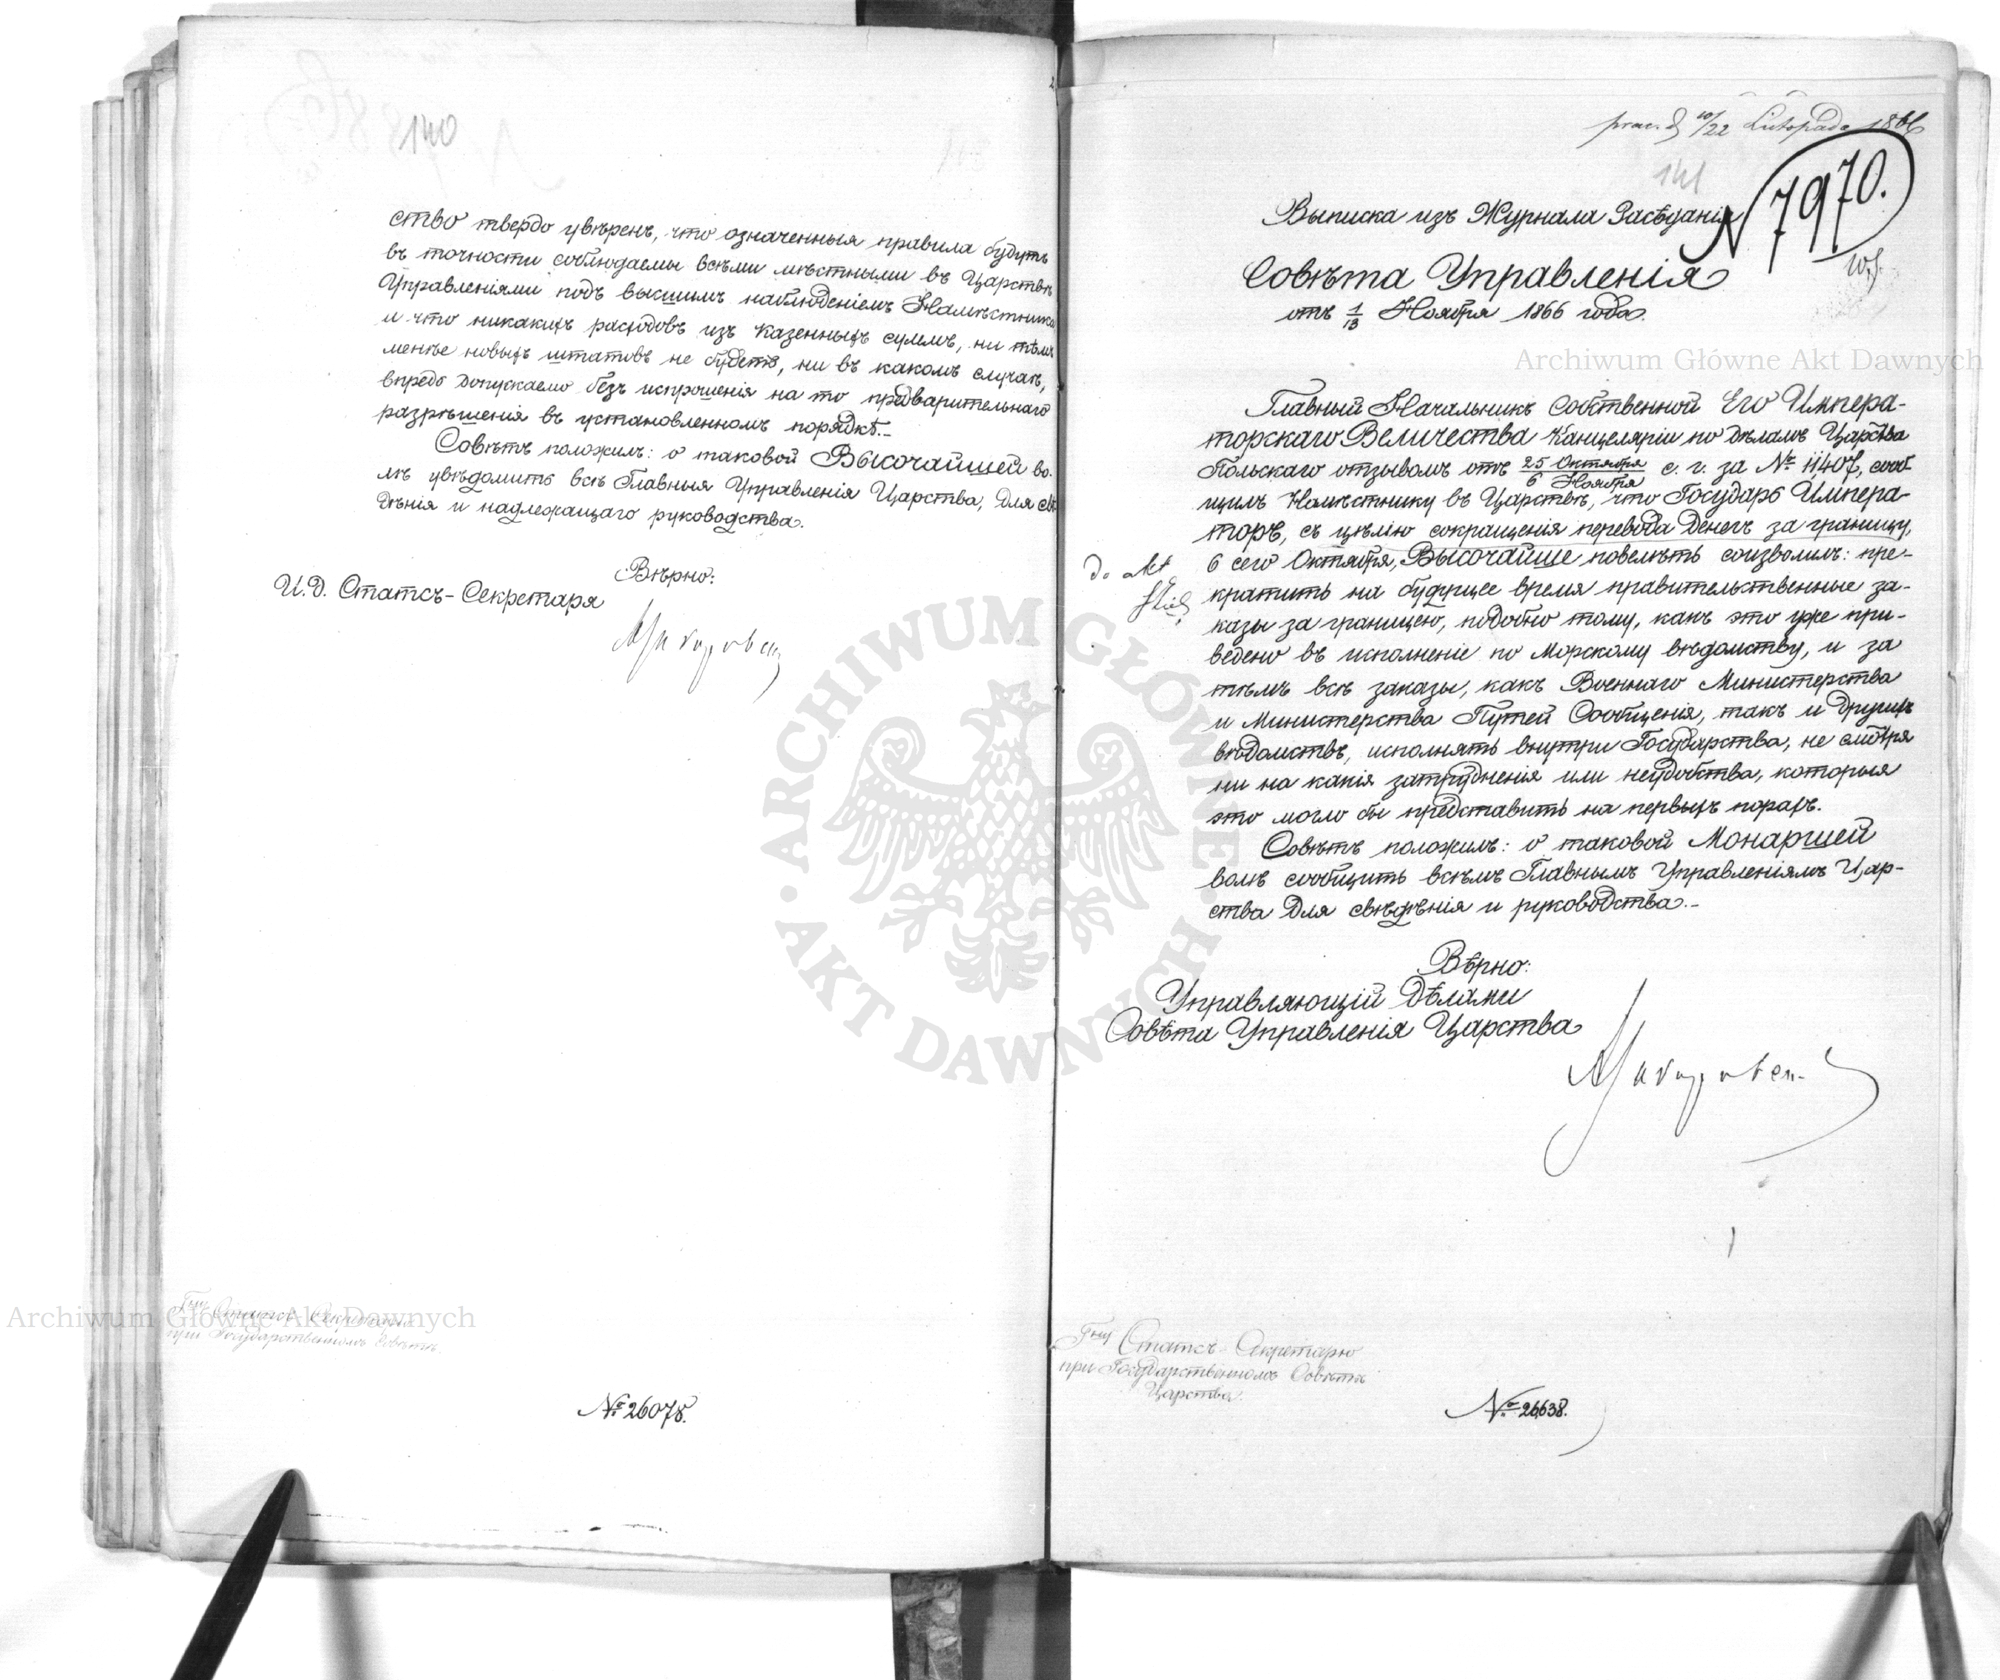 140
ство твердо увѣренъ, что означенныя правила будутъ
въ точности соблюдаемы всѣми мѣстными въ Царствѣ
Управленіями подъ высшимъ наблюденіемъ Намѣстника
и что никакихъ расходовъ изъ казенныхъ суммъ, ни тѣмъ
менѣе новыхъ штатовъ не будетъ, ни въ какомъ случаѣ,
впредь допускаемо безъ испрошенія на то предварительнаго
разрѣшенія въ установленномъ порядкѣ.-
Совѣтъ положилъ: о таковой Высочайшей во-
лѣ увѣдомить всѣ Главныя Управленія Царства, для свѣ-
дѣнія и надлежащаго руководства.
Вѣрно:
И.д. Статсъ-Секретаря
Гну Статсъ-Секретарю
при Государственномъ Совѣтѣ
№ 26078.
10/22 Listopada 1866
141
N 7970.
Выписка изъ Журнала Засѣданія
Совѣта Управленія
отъ 1/13 Ноября 1866 года.
Главный Начальникъ Собственной Его Импера-
торскаго Величества Канцеляріи по дѣламъ Царства
Польскаго отзывомъ отъ 25 Октября/6 Ноября с. г. за № 11,407, сооб-
щилъ Намѣстнику въ Царствѣ, что Государь Импера-
торъ, съ цѣлію сокращенія перевода денегъ за границу,
6 сего Октября, Высочайше повелѣть соизволилъ: пре-
кратить на будущее время правительственные за-
казы за границею, подобно тому, какъ это уже при-
ведено въ исполненіе по Морскому вѣдомству, и за
тѣмъ всѣ заказы, какъ Военнаго Министерства
и Министерства Путей Сообщенія, такъ и другихъ
вѣдомствъ, исполнять внутри Государства, не смотря
ни на какія затрудненія или неудобства, которыя
это могло бы представить на первыхъ порахъ.
Совѣтъ положилъ: о таковой Монаршей
волѣ сообщить всѣмъ Главнымъ Управленіямъ Цар-
ства для свѣдѣнія и руководства.-
do akt
Вѣрно:
Управляющій Дѣлами
Совѣта Управленія Царства
Гну Статсъ-Секретарю
при Государственномъ Совѣтѣ
Царства.
№ 26638.
Archiwum Główne Akt Dawnych
Archiwum Główne Akt Dawnych
ARCHIWUM GŁÓWNE · AKT DAWNYCH ·